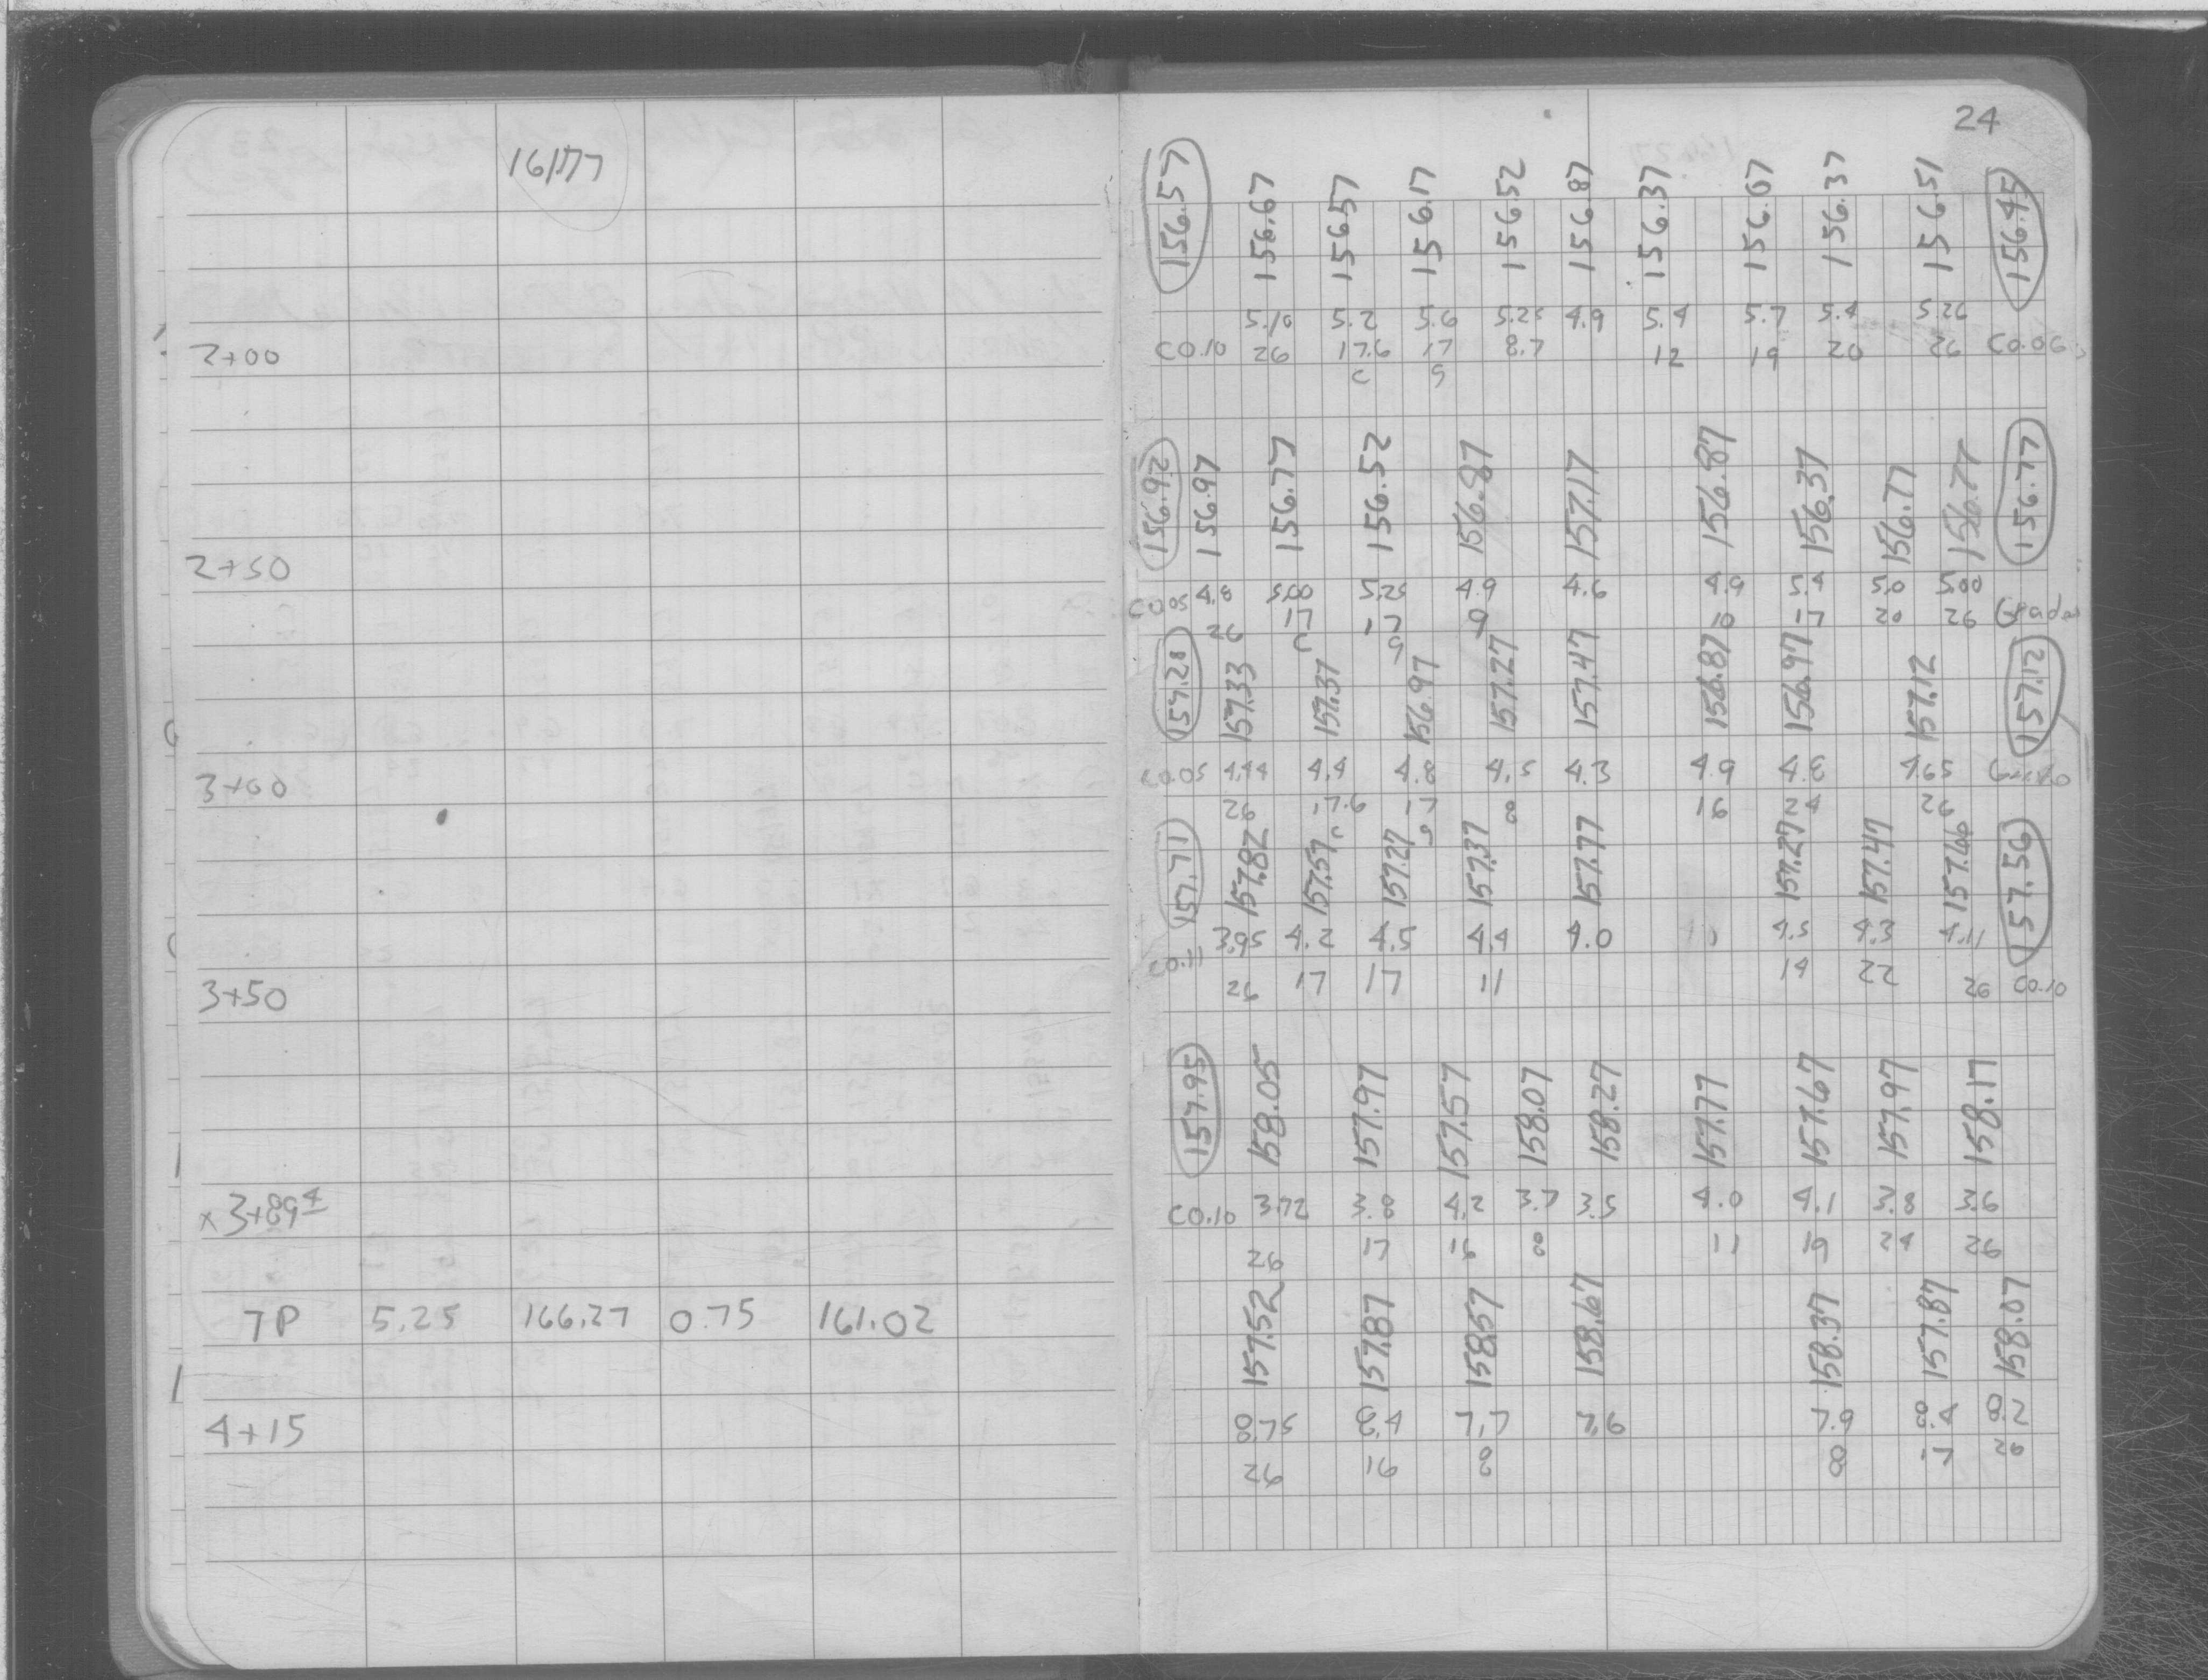 24
161.77
156.57 156.67 156.57 156.17 156.52 156.87 156.37 156.07 156.37 156.51 156.45
5.10 5.2 5.6 5.25 4.9 5.4 5.7 5.4 5.26
2+00 C0.10 26 17.6 17 8.7 12 19 20 26 C0.06
C G
156.92 156.97 156.77 156.52 156.87 157.17 156.87 156.37 156.77 156.77 156.77
2+50 C0.05 4.8 5.00 5.25 4.9 4.6 4.9 5.4 5.0 5.00
26 17 17 9 10 17 20 26 Grade
C G
157.28 157.33 157.37 156.97 157.27 157.47 156.87 156.97 157.12 157.12
3+00 C0.05 4.44 4.4 4.8 4.5 4.3 4.9 4.8 4.65
26 17.6 17 8 16 24 26
C G
157.71 157.82 157.57 157.27 157.37 157.77 157.27 157.47 157.66 157.56
C0.11 3.95 4.2 4.5 4.4 4.0 4.5 4.3 4.11
3+50 26 17 17 11 14 22 26 C0.10
157.95 158.05 157.97 157.57 158.07 158.27 157.77 157.67 157.97 158.17
x 3+89 4 C0.10 3.72 3.8 4.2 3.7 3.5 4.0 4.1 3.8 3.6
26 17 16 8 11 19 24 26
TP 5.25 166.27 0.75 161.02
157.52 157.87 158.57 158.67 158.37 157.87 158.07
4+15 8.75 8.4 7.7 7.6 7.9 8.4 8.2
26 16 8 8 17 26